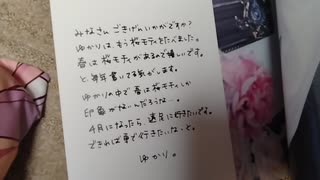 みなさん ごきげんいかがですか？
ゆかりは、もう桜モチをたべました。
春は桜モチがあるので嬉しいです。
と、毎年書いてる気がします。
ゆかりの中で春は桜モチしか
印象がないんだろうな…。
4月になったら、遠足に行きたいです。
できれば車で行きたいなーと。
ゆかり。